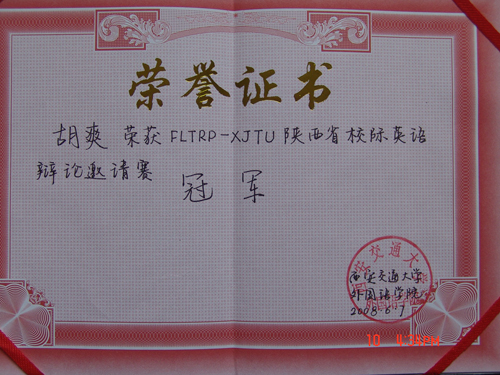 荣誉证书
胡爽 荣获 FLTRP-XJTU 陕西省校际英语
辩论邀请赛
冠军
西安交通大学
外国语学院
2008.6.7